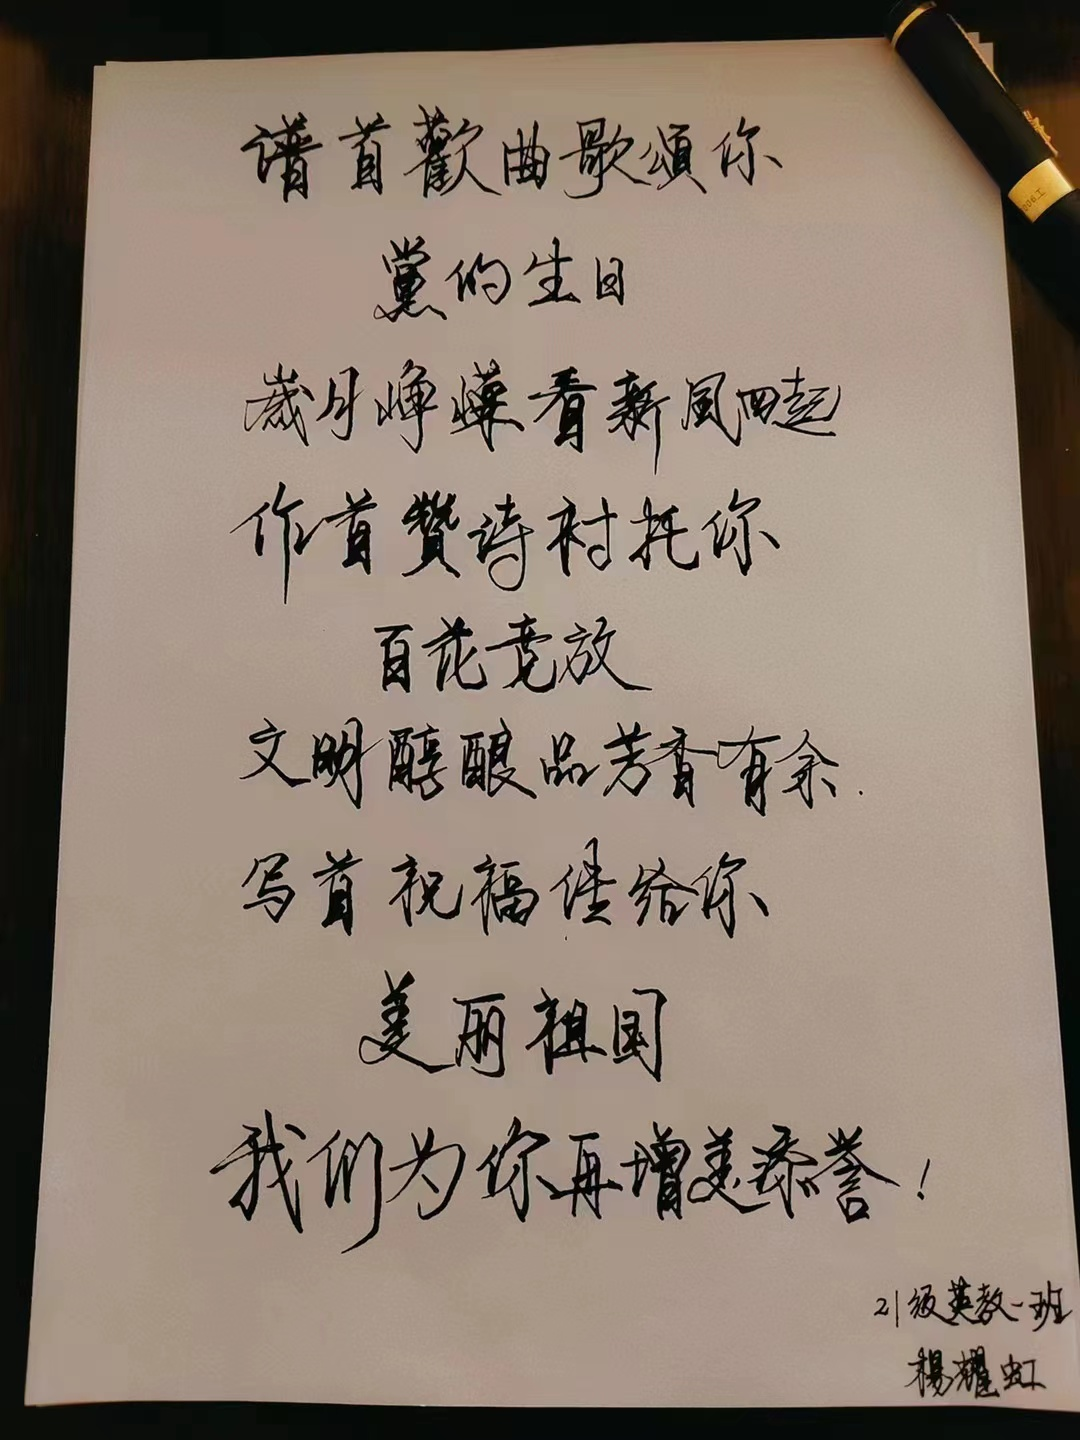 谱首歡曲歌頌你
黨的生日
歲月峥嵘看新風四起
作首贊诗衬托你
百花竞放
文明醇酿品芳香有余.
写首祝福佳给你
美丽祖国
我们为你再增美添誉!
21级英教一班
楊耀虹